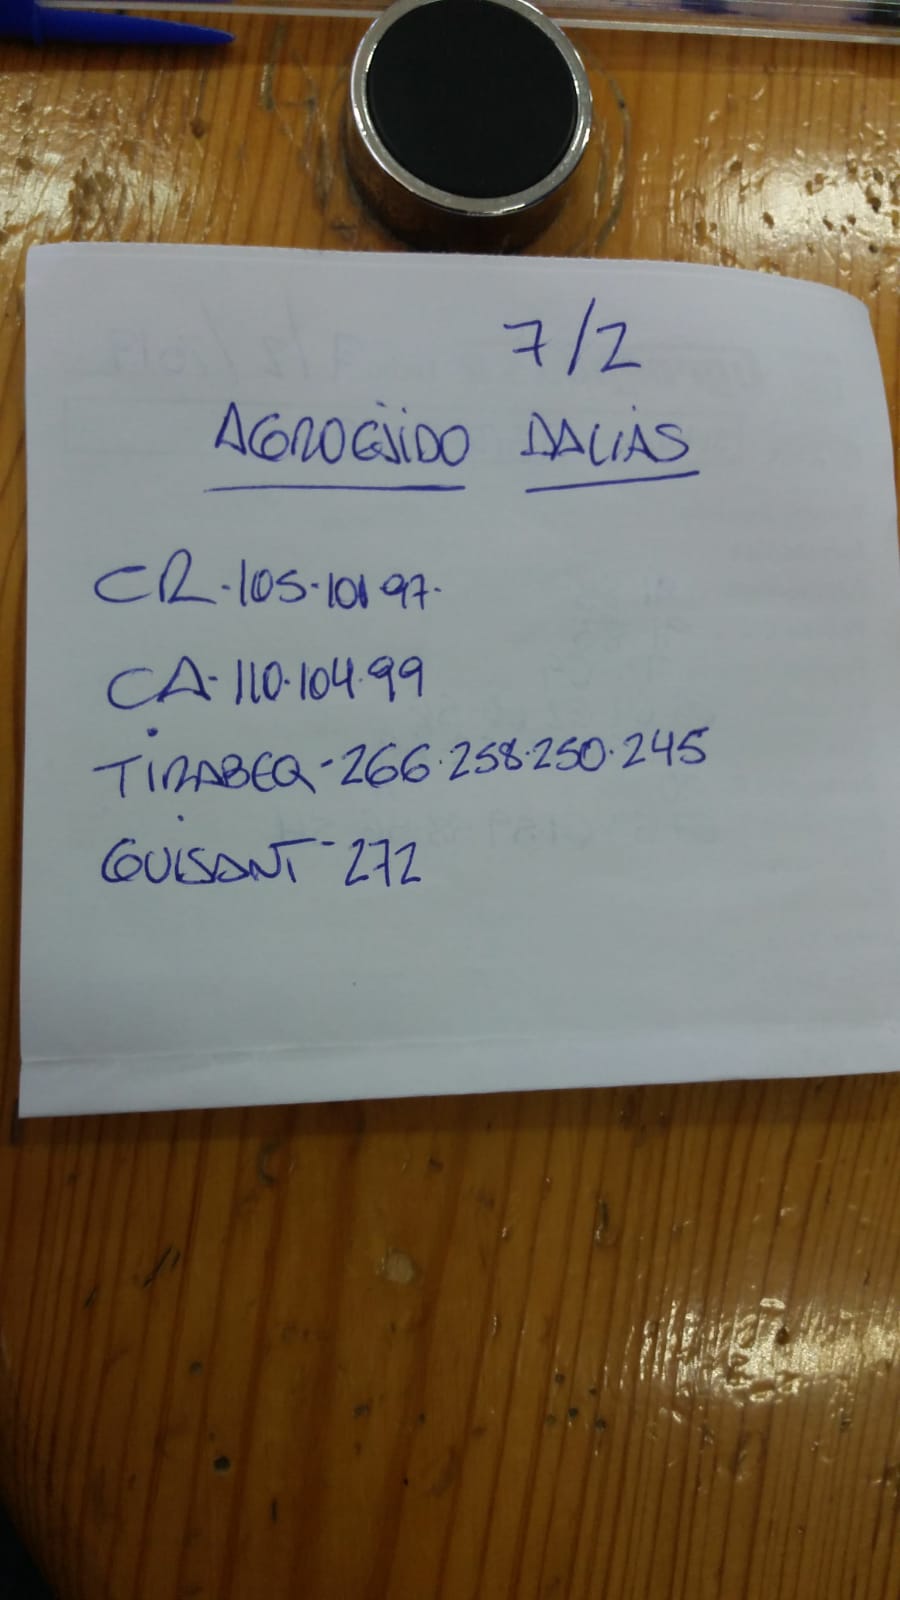 7/2
AGROEJIDO DALIAS
CR-105-101-97-
CA-110-104-99
TIRABEQ-266-258-250-245
GUISANT-272